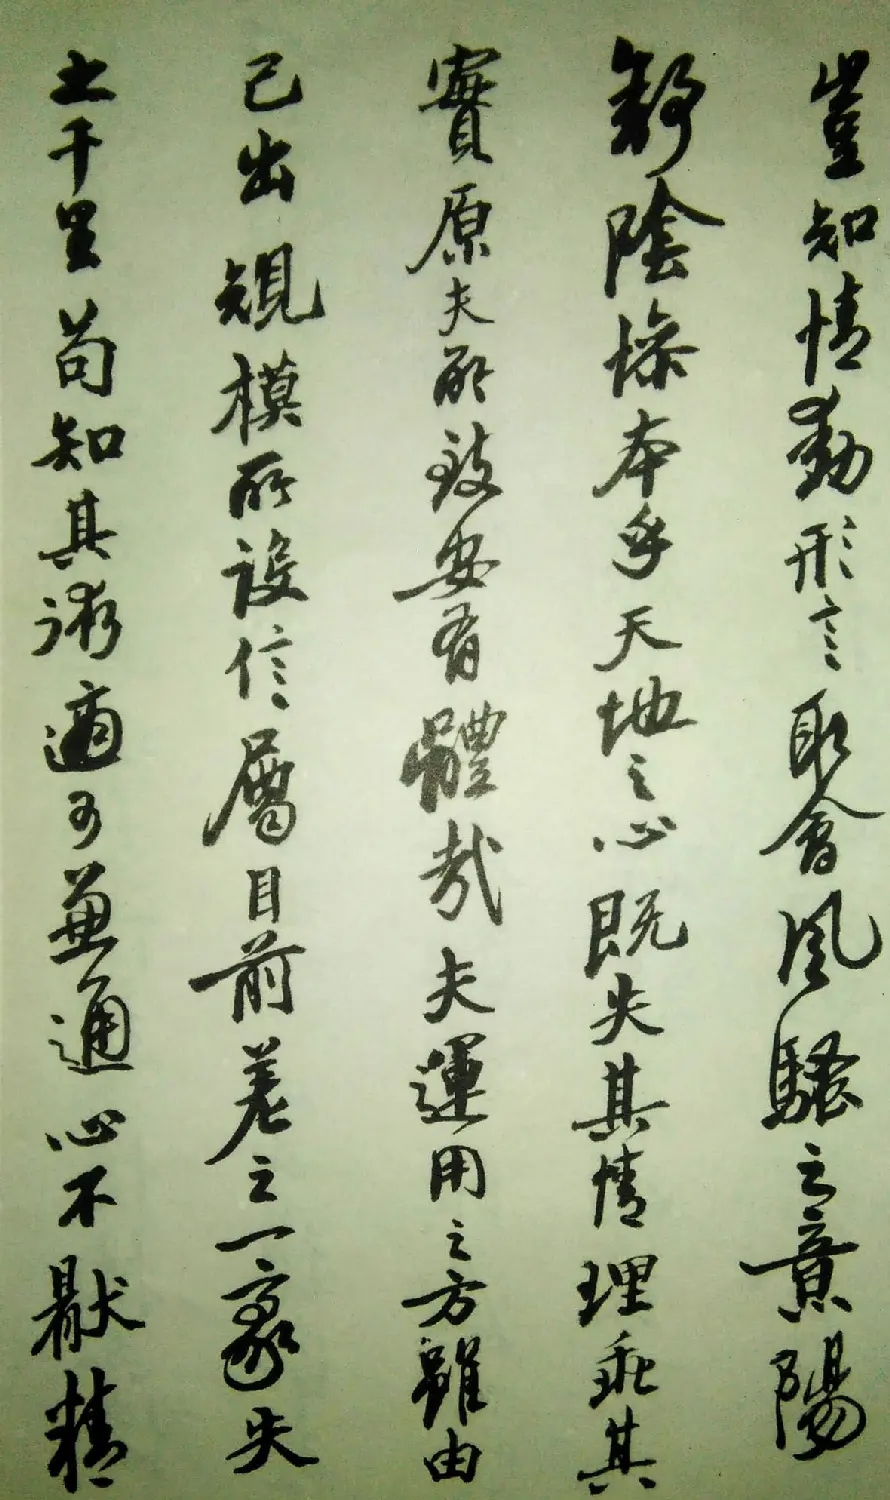 豈知情動形言取會風騷之意陽
舒陰慘本乎天地之心既失其情理乖其
實原夫所致安有體哉夫運用之方雖由
己出規模所設信屬目前差之一豪失
之千里苟知其術適可兼通心不厭精